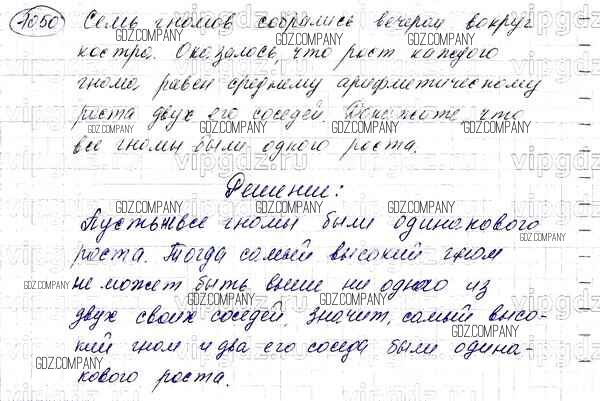 1050 Семь гномов собрались вечером вокруг
костра. Оказалось, что рост каждого
гнома равен среднему арифметическому
роста двух его соседей. Докажите, что
все гномы были одного роста.
Решение:
Пусть не все гномы были одинакового
роста. Тогда самый высокий гном
не может быть выше ни одного из
двух своих соседей, значит, самый высо-
кий гном и два его соседа были одина-
кового роста.